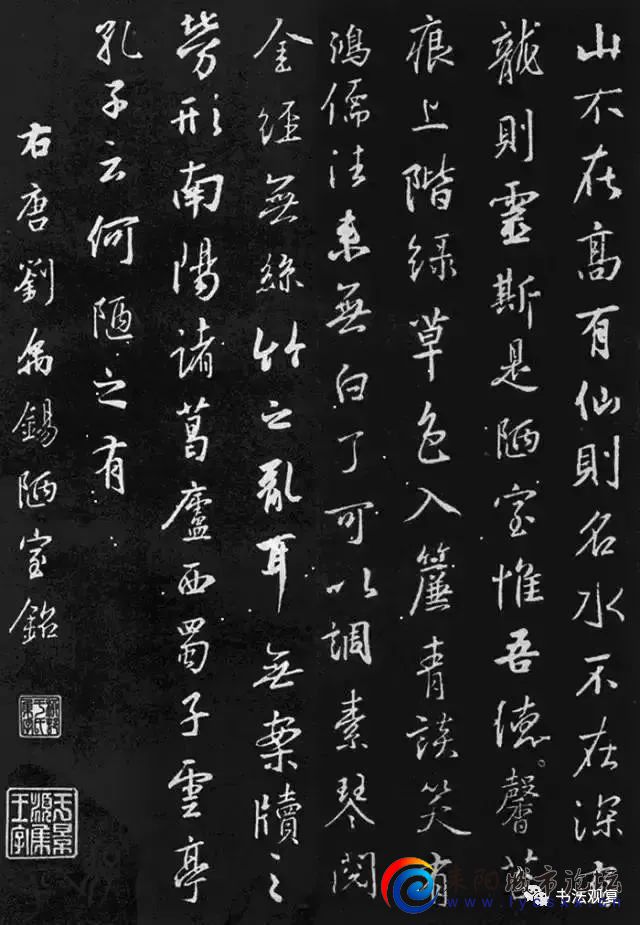 山不在高有仙則名水不在深有
龍則靈斯是陋室惟吾德馨苔
痕上階緑草色入簾青談笑有
鴻儒往来無白丁可以調素琴閱
金經無絲竹之亂耳無案牘之
勞形南陽諸葛廬西蜀子雲亭
孔子云何陋之有
右唐劉禹錫陋室銘
耒阳城市论坛
书法观复